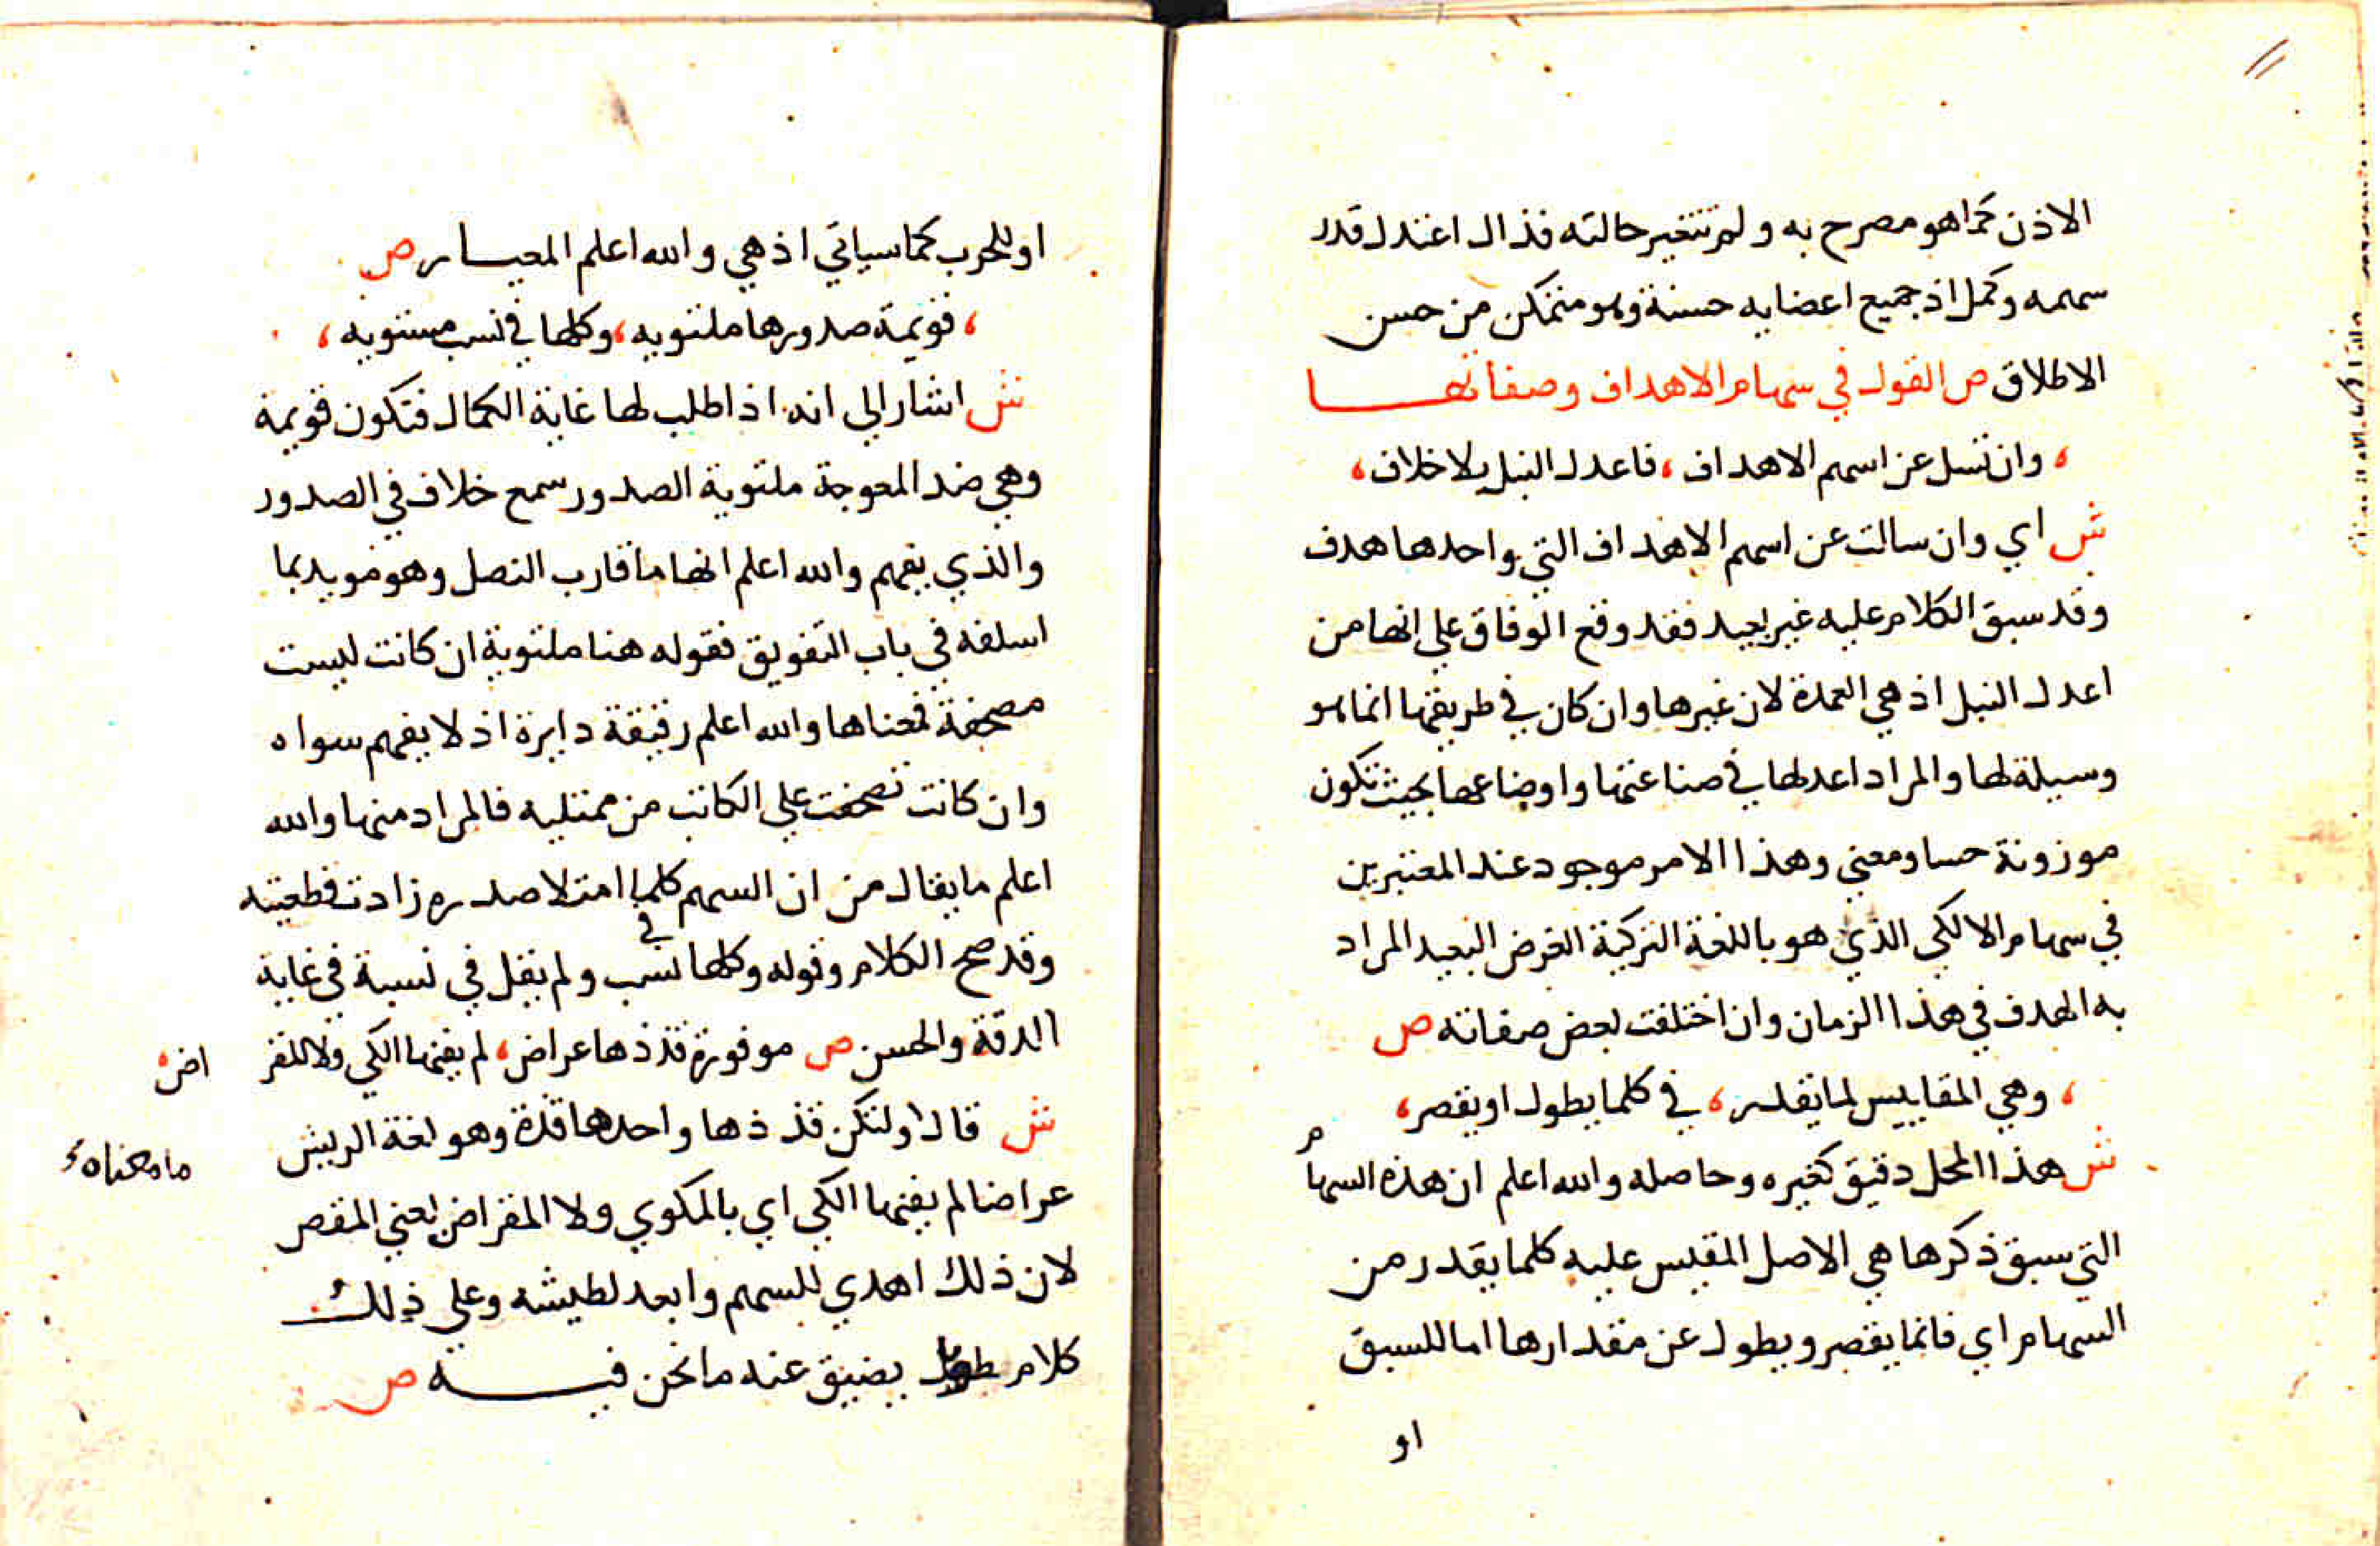 الاذن كما هو مصرح به ولم تتغير حالته فذاك اعتدل قدر
سهمه وكمل اذ جميع اعضايه حسنة وهو متمكن من حسن
الاطلاق ص القول في سهام الاهداف وصفاتها
، وان تسل عن اسهم الاهداف ، فاعدل النبل بلا خلاف ،
ش اي وان سالت عن اسهم الاهداف التي واحدها هدف
وقد سبق الكلام عليه غير بعيد فقد وقع الوفاق علي انها من
اعدل النبل اذ هي العمدة لان غيرها وان كان في طريقتها انما هو
وسيلة لها والمراد اعدلها في صناعتها واوضاعها بحيث تكون
موزونة حسا ومعني وهذا الامر موجود عند المعتبرين
في سهام الالكي الذي هو باللغة التركية الغرض البعيد المراد
به الهدف في هذا الزمان وان اختلفت بعض صفاته ص
، وهي المقاييس لما يقدر ، في كلما يطول او يقصر ،
ش هذا المحل دقيق كغيره وحاصله والله اعلم ان هذه السهام
التي سبق ذكرها هي الاصل المقيس عليه كلما يقدر من
السهام اي فانما يقصر ويطول عن مقدارها اما للسبق
او
او للحرب كما سياتي اذ هي والله اعلم المعيار ص
، قويمة صدورها ملتويه ، وكلها في نسب مستويه ،
ش اشار الي انه اذا طلب لها غاية الكمال فتكون قويمة
وهي ضد المعوجة ملتوية الصدور سمع خلاف في الصدور
والذي يفهم والله اعلم انها ما قارب النصل وهو مويد بما
اسلفه في باب التفويق فقوله هنا ملتوية ان كانت ليست
مصحفة فمعناها والله اعلم رقيقة دايرة اذ لا يفهم سواه
وان كانت تصحفت علي الكاتب من ممتليه فالمراد منها والله
اعلم ما يقال من ان السهم كلما امتلا صدره زادت قطعيته
وقد صح الكلام وقوله وكلها في نسب ولم يقل في نسبة في غاية
الدقة والحسن ص موفورة قذذها عراض ، لم يفنها الكي ولا المقر اض ،
ش قال ولتكن قذذها واحدها قذة وهو لغة الريش ما معناه
عراضا لم يفنها الكي اي بالمكوي ولا المقراض يعني المقص
لان ذلك اهدي للسهم وابعد لطيشه وعلي ذلك
كلام طويل يضيق عنه ما نحن فيه ص